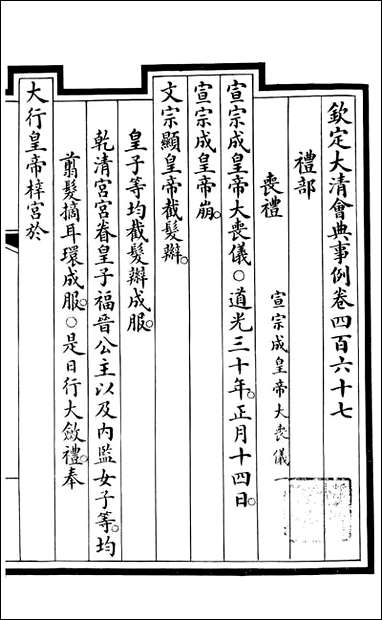 欽定大清會典事例卷四百六十七
禮部
喪禮 宣宗成皇帝大喪儀一
宣宗成皇帝大喪儀○道光三十年正月十四日
宣宗成皇帝崩
文宗顯皇帝截髮辮
皇子等均截髮辮成服
乾清宮宮眷皇子福晉公主以及內監女子等均
翦髮摘耳環成服○是日行大斂禮奉
大行皇帝梓宮於